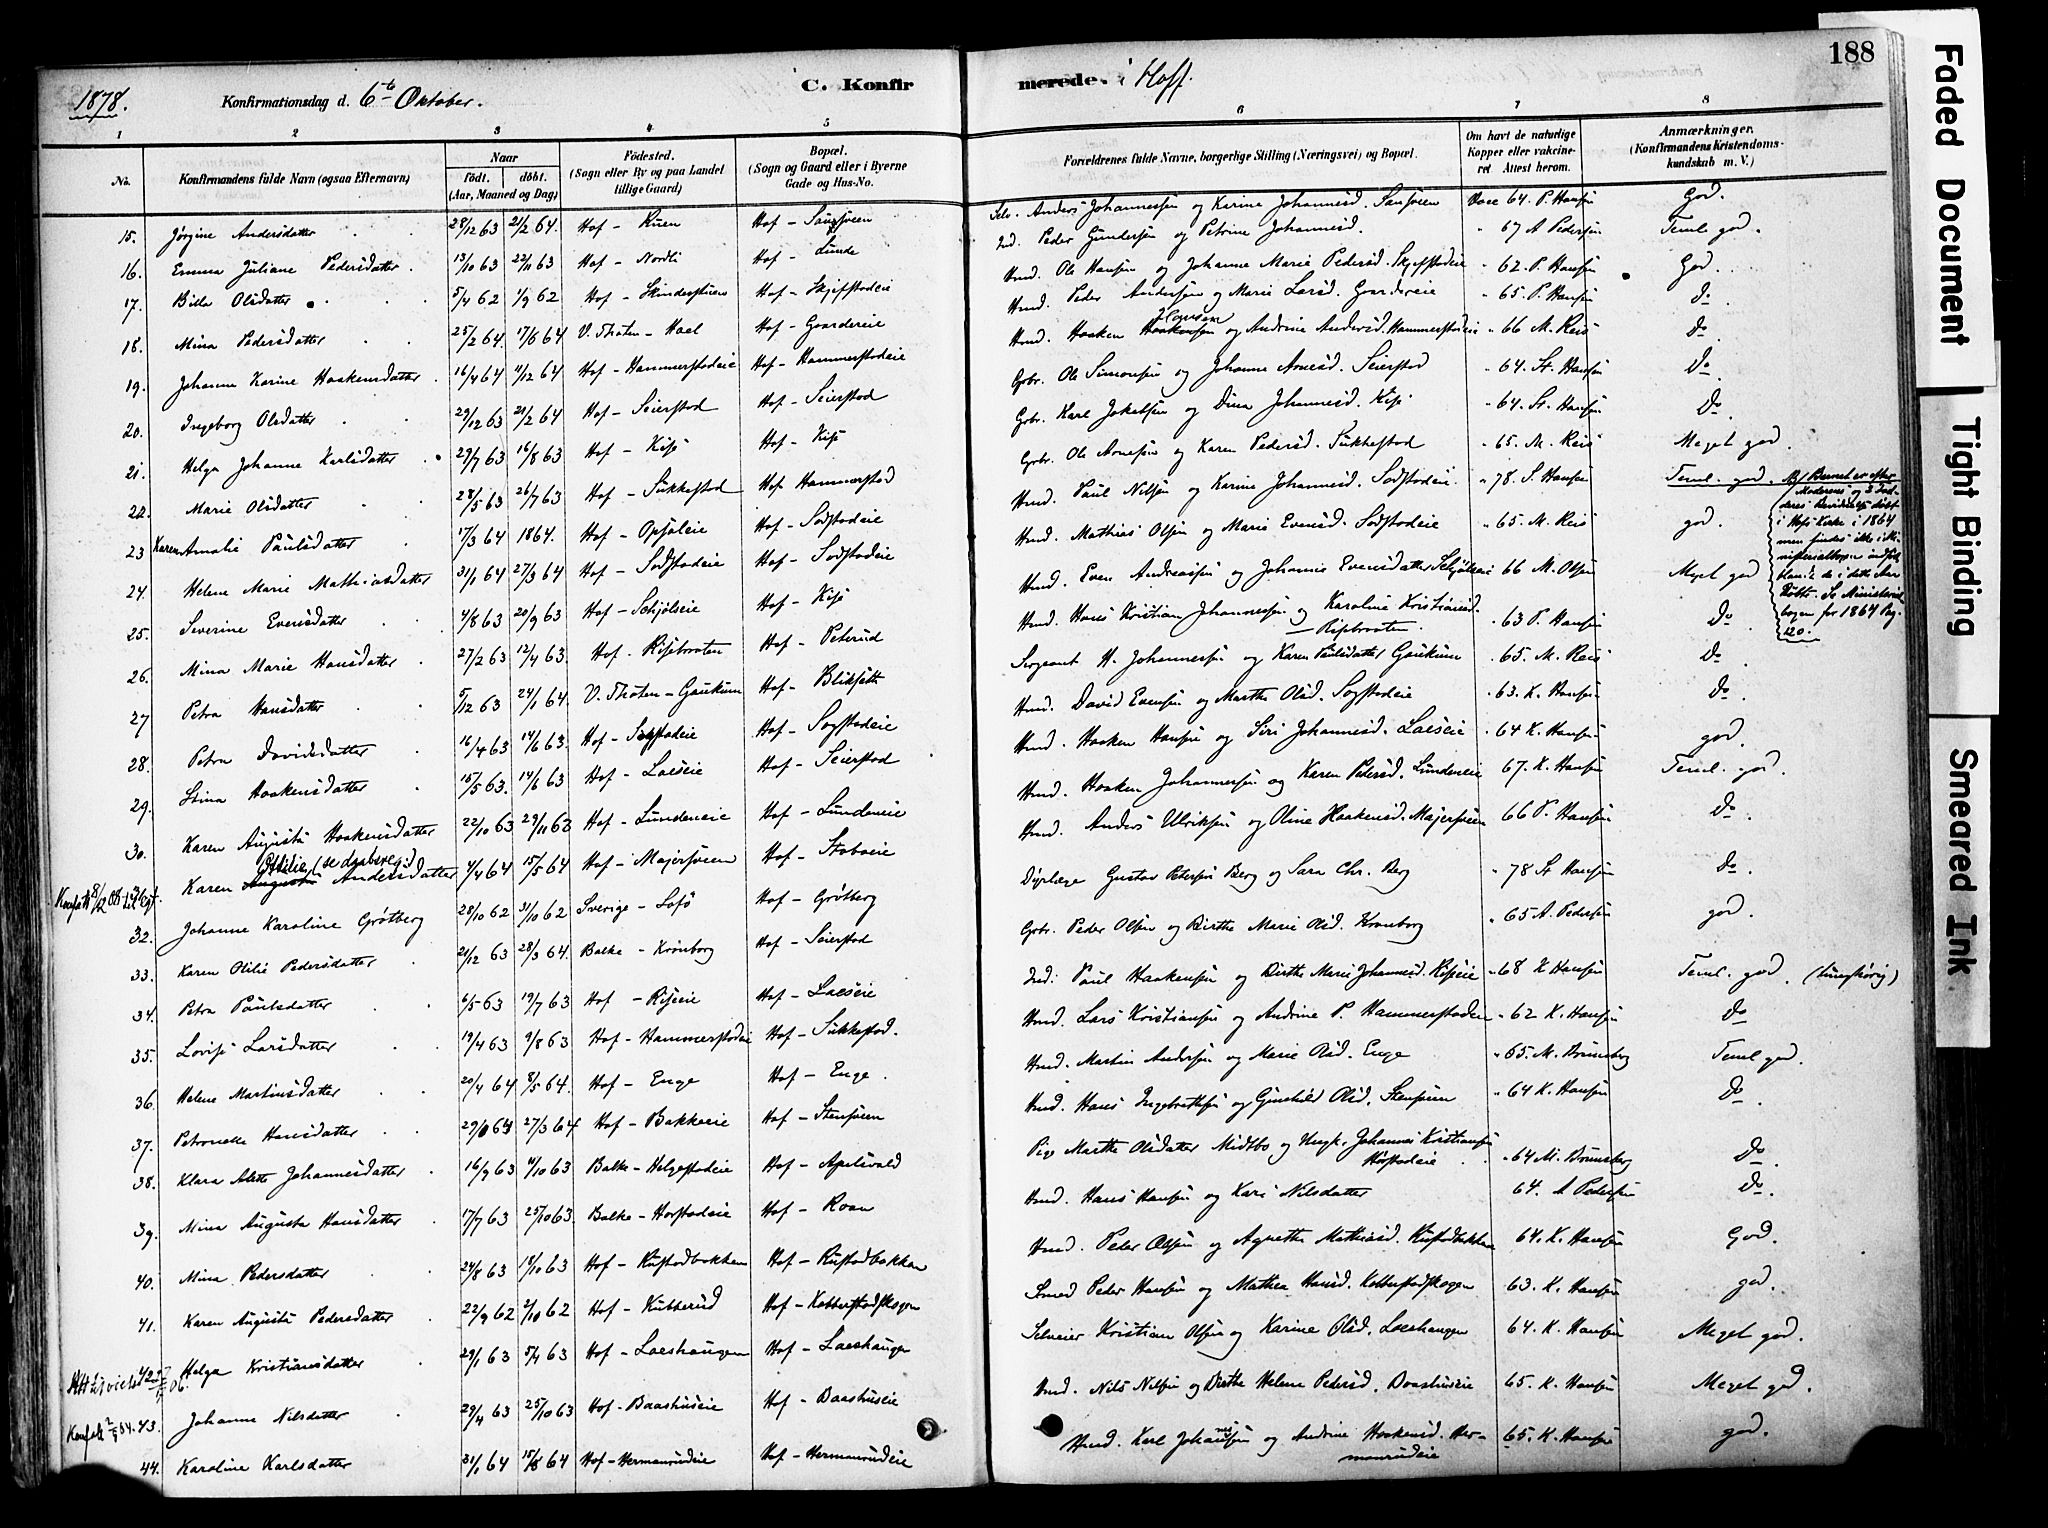 188
1878.
Konfirmationsdag d. 6te Oktober.
C. Konfir
merede. i Hoff.
1 2 3 4 5
6 7 8
No.
Konfirmandens fulde Navn (ogsaa Efternavn)
Naar
født. døbt.
(Aar, Maaned og Dag)
Fødested.
(Sogn eller By og paa Landet
tillige Gaard)
Bopæl.
(Sogn og Gaard eller i Byerne
Gade og Hus-No.
Forældrenes fulde Navne, borgerlige Stilling (Næringsvei) og Bopæl.
Om havt de naturlige
Kopper eller vakcine-
ret Attest herom.
Anmærkninger.
(Konfirmandens Kristendoms-
kundskab m. V.)
15. Jørgine Andersdatter 28/12 63 21/2 64. Hof - Ruen Hof - Saugsveen Selv. Anders Johannessen og Karine Johannesd. Vacc 64. P. Hansen God.
16. Emma Juliane Pedersdatter. 13/10 63 22/11 63 Hof - Nordli Hof - Lunde Ind. Peder Gundersen og Petrine Johannesd. " 67 A Pedersen Teml. god.
17. Bille Olsdatter 5/4 62 1/9 62 Hof - Skinderstuen Hof - Skjefstadeie Hmd. Ole Hansen og Johanne Marie Pedersd. Skjefstadeie " 62. P. Hansen God.
18. Mina Pedersdatter 25/2 64. 17/5 64 V. Thoten - Hoel Hof - Gaardereie Hmd. Peder Andersen og Marie Larsd. Gaardereie " 65. P. Hansen Do
19. Johanne Karine Haakensdatter. 16/4 64 11/12 64 Hof - Hammerstadeie Hof - Hammerstadeie Hmd. Haaken Hansen og Andrine Andersd. Hammerstadeie " 66 M. Reis Do
20. Ingeborg Olsdatter 29/12 63 21/2 64. Hof - Seierstad Hof - Seierstad Grbr. Ole Simonsen og Johanne Arnesd. Seierstad " 64. St. Hansen Do
21. Helga Johanne Karlsdatter 29/7 63 16/8 63 Hof - Kise Hof - Kise Grbr. Karl Jakobsen og Dina Johannesd. Kise " 64. St. Hansen Do
22. Marie Olsdatter 28/5 63 26/7 63 Hof - Sukkestad Hof Hammerstad Grbr. Ole Arnesen og Karen Pedersd. Sukkestad " 65. M. Reis Meget god.
23 Karen Amalie Paulsdatter 17/3 64 1864. Hof - Opsaleie Hof - Sodstadeie Hmd. Paul Nilsen og Karine Johannesd. Sodstadeie. " 78. S. Hansen Teml. god.
Barnet er efter
Moderens og 2 Fad-
deres Forklaring døbt
i Hofs Kirke i 1864
men findes ikke i Mi-
nisterialbogen indført
blandt de i dette Aar
Døbte. Se Ministerial
bogen for 1864 Pag.
120.
24. Helene Marie Mathiasdatter 31/1 64 27/3 64 Hof - Sodstadeie Hof - Sodstadeie Hmd. Mathias Olsen og Marie Evensd. Sodstadeie " 65. M. Reis god.
25. Severine Evensdatter 4/8 63 20/9 63 Hof - Schjølseie Hof - Kise Hmd. Even Andreassen og Johanne Evensdatter Schjølseie 66 M. Olsen Meget god
26. Mina Marie Hansdatter 27/2 63 12/4 63. Hof - Risbraaten Hof - Peterud Hmd. Hans Kristian Johannessen og Karoline Kristiansd. Risbraaten. " 63 P. Hansen Do
27 Petra Hansdatter 5/12 63 24/1 64. V. Thoten - Gaukum Hof - Bliksæth Sergeant H. Johannessen og Karen Paulsdatter Gaukum " 65. M. Reis Do
28. Petra Davidsdatter 16/4 63 14/6 63. Hof - Sogstadeie Hof - Sogstadeie Hmd. David Evensen og Marthe Olsd. Sogstadeie " 63. K. Hansen Do
29. Stina Haakensdatter 15/5 63. 14/6 63 Hof - Laeseie Hof - Seierstad Hmd. Haaken Hansen og Siri Johannesd. Laeseie " 64 K. Hansen god.
30. Karen Augusta Haakensdatter 22/10 63 29/11 63 Hof - Lundeneie Hof - Lundeneie Hmd. Haaken Johannessen og Karen Pedersd. Lundeneie 67. K. Hansen Teml. god.
Ottilie (se daabsreg.)
Karen Augusta Andersdatter 4/4 64 15/5 64 Hof - Majersveen Hof - Staboeie Hmd. Anders Ulriksen og Oline Haakensd. Majersveen 66 P. Hansen Do
32. Johanne Karoline Grøtberg 28/10 62 31/10 62 Sverige - Hof - Grøtberg Dyrlæge Gustav Petersen Berg og Sara Chr. Berg " 78 St Hansen Do
33. Karen Olilie Pedersdatter 21/12 63 28/3 64. Balke - Kronborg Hof - Seierstad Grbr. Peder Olsen og Birthe Marie Olsd. Kronborg " 65 A. Pedersen god.
34. Petra Paulsdatter 6/5 63 19/7 63 Hof - Riseeie Hof - Laeseie Ind. Paul Haakensen og Birthe Marie Johannesd. Riseeie " 68 K Hansen Teml. god. (tunghørig)
35. Lovise Larsdatter 19/4 63 9/8 63 Hof - Hammerstadeie Hof - Sukkestad. Hmd. Lars Kristiansen og Andrine P. Hammerstadeie " 62 K. Hansen Do
36. Helene Martinsdatter 20/4 64 8/5 64. Hof - Enge Hof - Enge. Hmd. Martin Andersen og Marie Olsd. Enge " 65. M. Brunsberg Teml god.
37. Petronelle Hansdatter 27/3 64 Hof - Bakkeeie Hof - Stensveen Hmd. Hans Ingebretsen og Gunhild Olsd. Stensveen " 64 K. Hansen Do
38. Klara Alette Johannesdatter 16/9 63 11/10 63 Balke - Helgestadeie Hof - Apelsvold Pige Marthe Olsdatter Midtbo og Ungk. Johannes Kristiansen Horstadeie " 64 M. Brunsberg Do
39. Mina Augusta Hansdatter 17/7 63 25/10 63. Balke - Horstadeie Hof - Roen Hmd. Hans Hansen og Kari Nilsdatter 64. A Pedersen Do
40. Mina Pedersdatter 24/8 63 18/10 63 Hof - Rustadbakken Hof - Rustadbakken Hmd. Peder Olsen og Agnethe Mathiasd. Rustadbakken 64. K. Hansen God.
41. Karen Augusta Pedersdatter 22/9 62 2/10 62 Hof - Kubberud Hof - Kobberstadskogen Smed Peder Hansen og Mathea Hansd. Kobberstadskogen 63. K. Hansen god.
42 Helga Kristiansdatter 29/1 63 5/4 63 Hof - Laeshaugen Hof - Laeshaugen Selveier Kristian Olsen og Karine Olsd. Laeshaugen 64. K. Hansen Meget god.
43. Johanne Nilsdatter 29/4 63 25/10 63 Hof - Baashuseie Hof - Baashuseie Hmd. Nils Nilsen og Birthe Helene Pedersd. Baashuseie 65. K. Hansen Meget god.
44. Karoline Karlsdatter 31/1 64 15/5 64 Hof - Hermanrudeie Hof - Hermanrudeie Hmd. Karl Johannessen og Andrine Haakensd. Her-
manrudeie 65. K. Hansen god.
Faded Document
Tight Binding
Smeared Ink